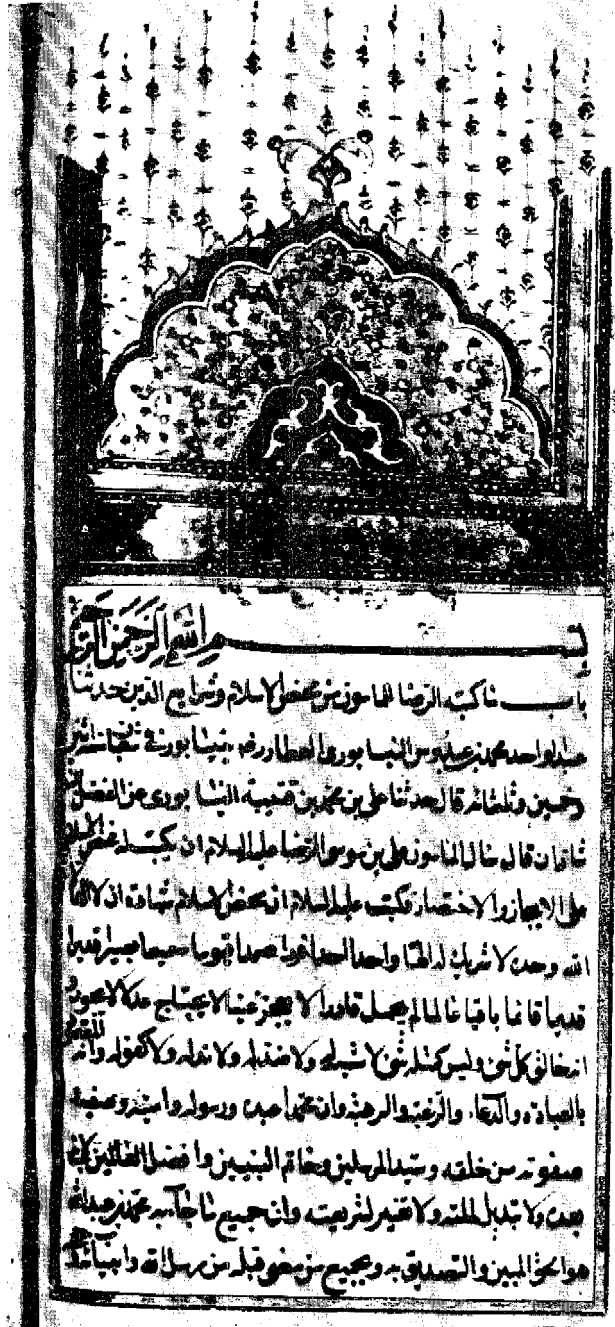 بسم الله الرحمن الرحيم
باب ما كتبه الرضا للمامون من محض الاسلام وشرايع الدين حدثنا
عبد الواحد محمد بن عبدوس النيسابورى العطار رضه بنيسابور فى شعبان سنة اثنين
وخمسين وثلثمائة قال حدثنا على بن محمد بن قتيبة النيسابورى عن الفضل بن
شاذان قال سال المامون على بن موسى الرضا عليه السلام ان يكتب له محض الاسلام
على الايجاز والاختصار فكتب عليه السلام ان محض الاسلام شهادة ان لا اله الا
الله وحده لا شريك له الها واحدا احدا فردا صمدا قيوما سميعا بصيرا قديرا
قديما قائما باقيا عالما لا يجهل قادرا لا يعجز غنيا لا يحتاج عدلا لا يجور و
انه خالق كل شئ وليس كمثله شئ لا شبه له ولا ضد له ولا ند له ولا كفو له وانه المقصود
بالعبادة والدعاء والرغبة والرهبة وان محمدا عبده ورسوله وامينه وصفيه
صفوته من خلقه وسيد المرسلين وخاتم النبيين وافضل العالمين لا نبى
بعده ولا تبديل لملته ولا تغيير لشريعته وان جميع ما جاء به محمد بن عبدالله
هو الحق المبين والتصديق به وبجميع من مضى قبله من رسل الله وانبيائه